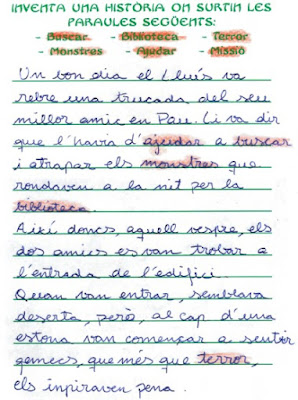 INVENTA UNA HISTÒRIA ON SURTIN LES
PARAULES SEGÜENTS:
- Buscar - Biblioteca - Terror
- Monstres - Ajudar - Missió
Un bon dia el Lluís va
rebre una trucada del seu
millor amic en Pau. Li va dir
que l'havia d'ajudar a buscar
i atrapar els monstres que
rondaven a la nit per la
biblioteca.
Així doncs, aquell vespre, els
dos amics es van trobar a
l'entrada de l'edifici.
Quan van entrar, semblava
deserta, però, al cap d'una
estona van començar a sentir
gemecs, que més que terror,
els inpiraven pena.